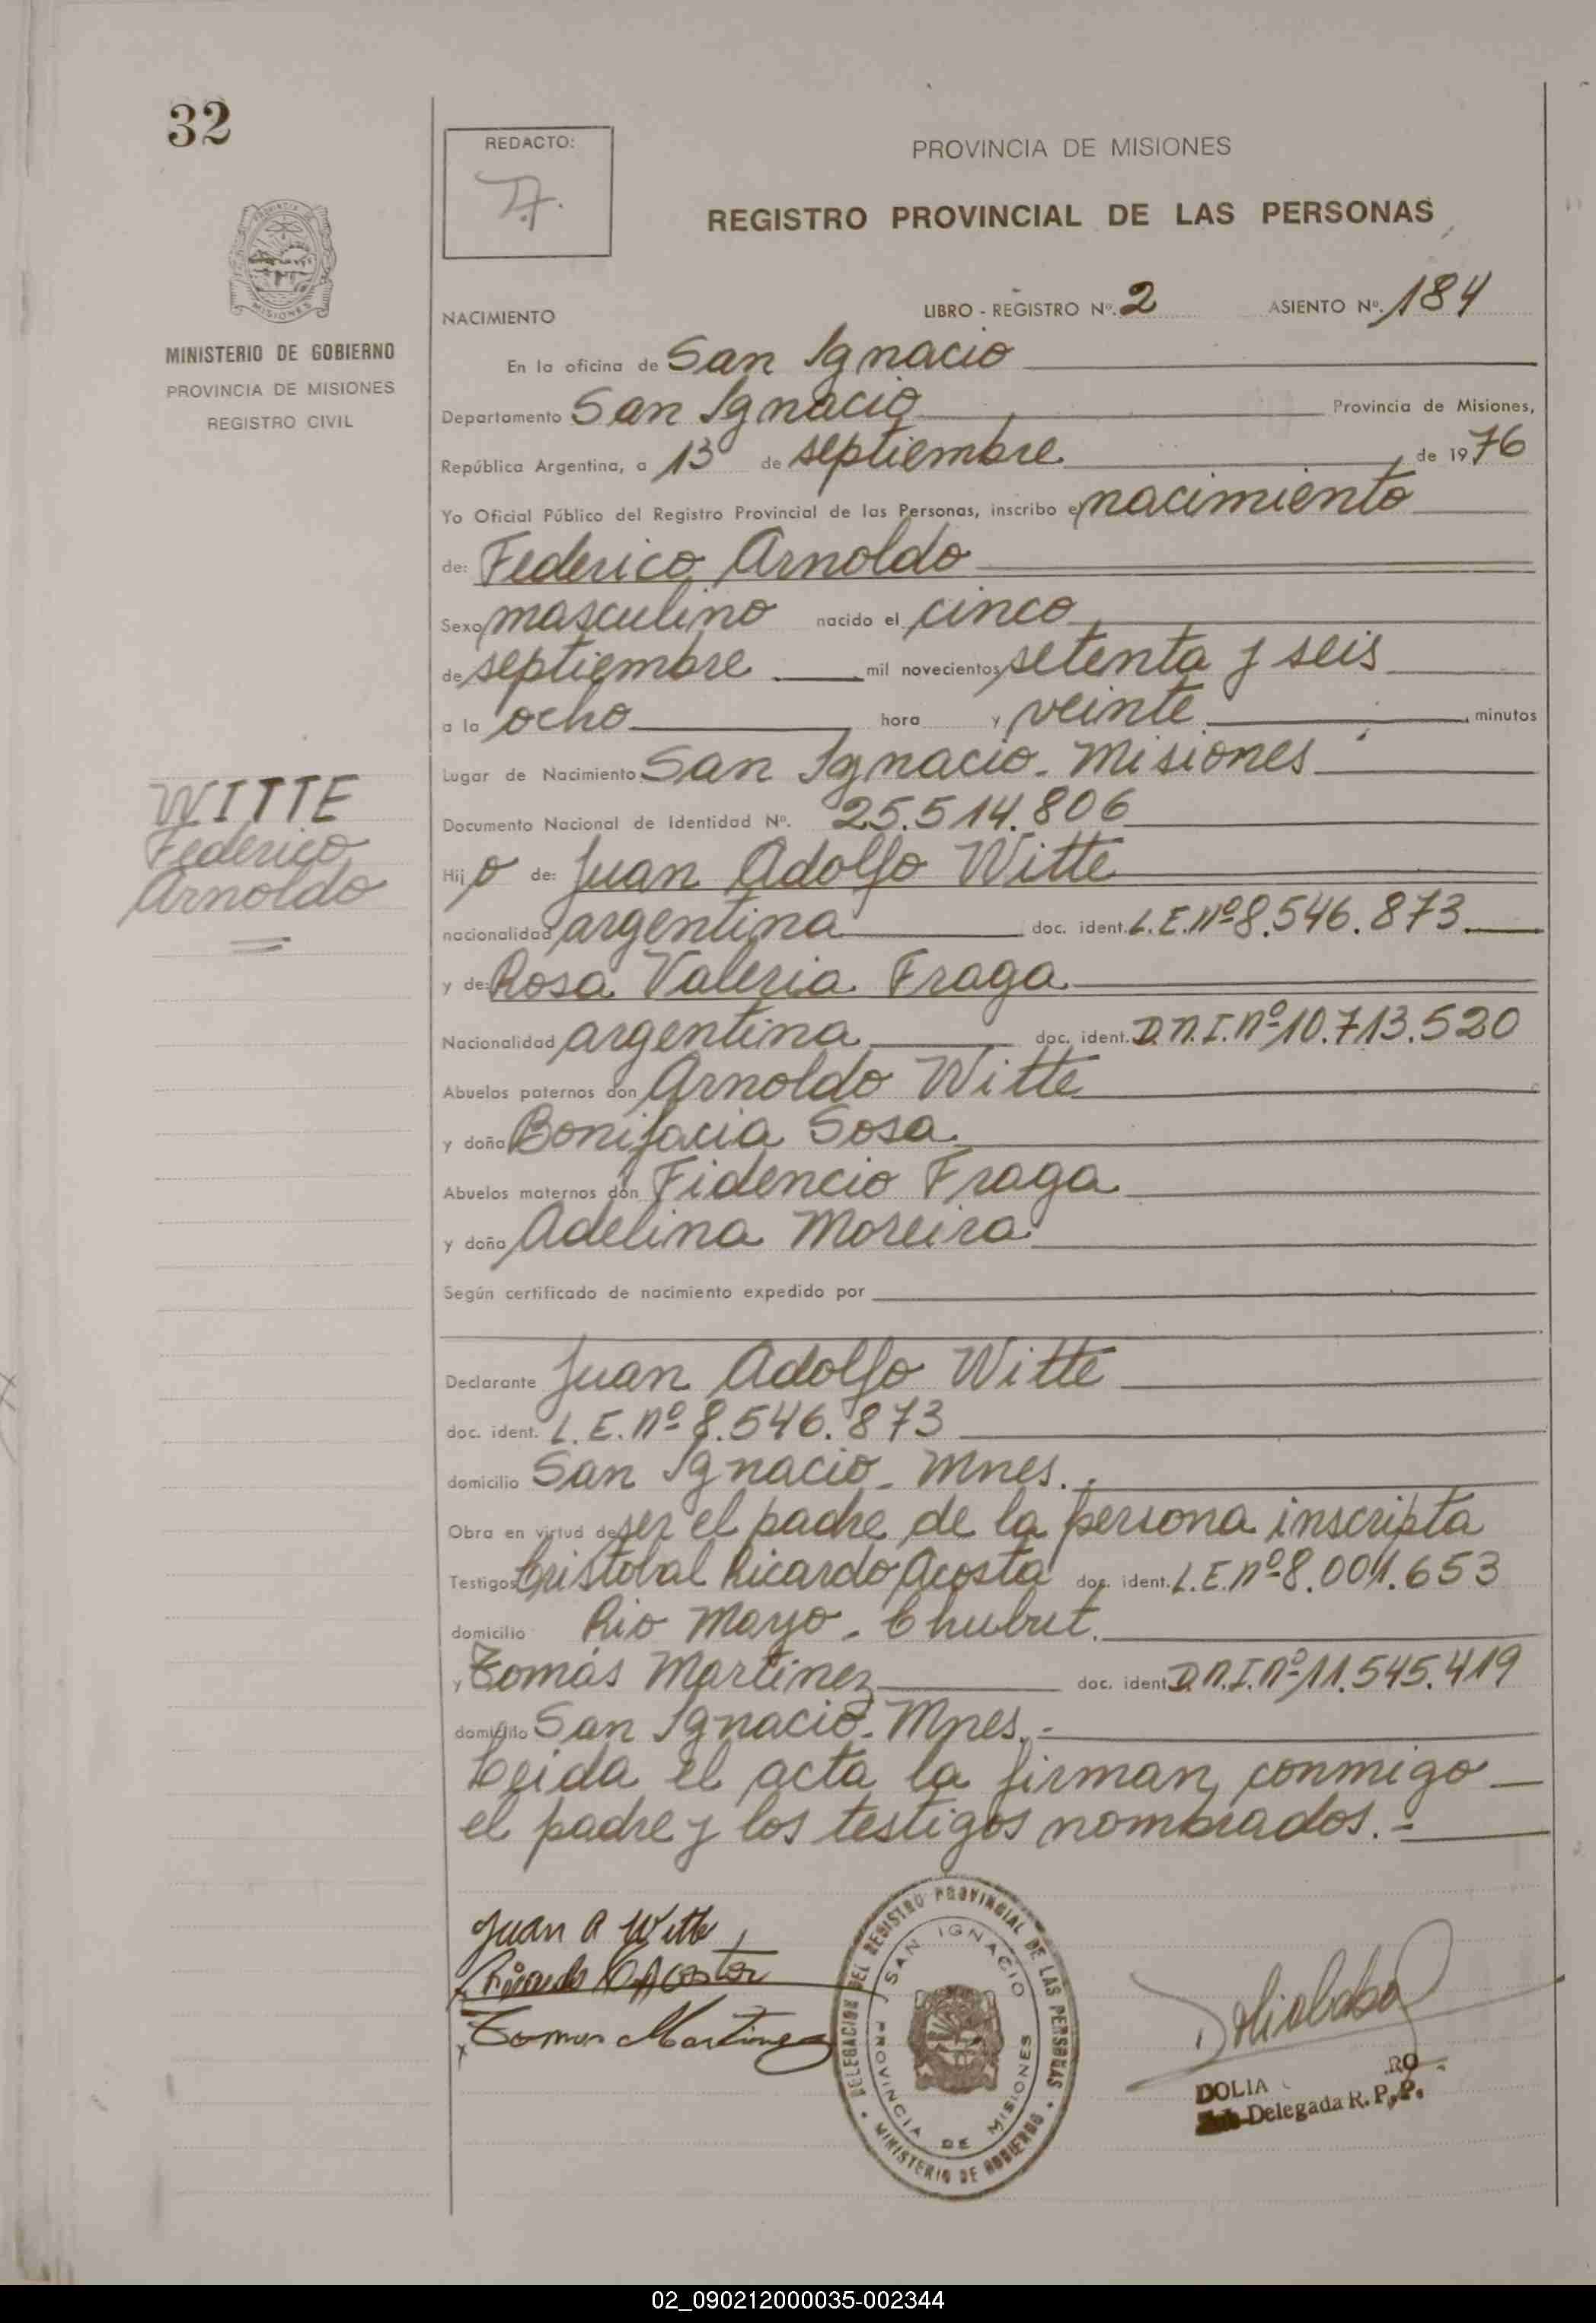 32
REDACTO:
PROVINCIA DE MISIONES
REGISTRO PROVINCIAL DE LAS PERSONAS
MINISTERIO DE GOBIERNO
PROVINCIA DE MISIONES
REGISTRO CIVIL
NACIMIENTO LIBRO - REGISTRO Nº. 2 ASIENTO Nº. 184
En la oficina de San Ignacio
Departamento San Ignacio Provincia de Misiones,
República Argentina, a 13 de septiembre de 1976
Yo Oficial Público del Registro Provincial de las Personas, inscribo el nacimiento
de: Federico Arnoldo
Sexo masculino nacido el cinco
de septiembre mil novecientos setenta y seis
a la ocho hora y veinte minutos
Lugar de Nacimiento San Ignacio - Misiones
WITTE
Federico
Arnoldo
Documento Nacional de Identidad Nº. 25.514.806
Hijo de: Juan Adolfo Witte
nacionalidad argentina doc. ident. L.E.Nº 8.546.873
y de: Rosa Valeria Fraga
Nacionalidad argentina doc. ident. D.N.I.Nº 10.713.520
Abuelos paternos don Arnoldo Witte
y doña Bonifacia Sosa
Abuelos maternos don Fidencio Fraga
y doña Adelina Moreira
Según certificado de nacimiento expedido por
Declarante Juan Adolfo Witte
doc. ident. L.E.Nº 8.546.873
domicilio San Ignacio - Mnes.
Obra en virtud de ser el padre de la persona inscripta
Testigos Cristobal Ricardo Acosta doc. ident. L.E.Nº 8.001.653
domicilio Rio Mayo - Chubut.
y Tomás Martinez doc. ident. D.N.I.Nº 11.545.419
domicilio San Ignacio - Mnes. -
Leida el acta la firman conmigo
el padre y los testigos nombrados. -
Juan A Witte
Ricardo C Acosta
Tomas Martinez
DELEGACION DEL REGISTRO PROVINCIAL DE LAS PERSONAS
MINISTERIO DE GOBIERNO
SAN IGNACIO
PROVINCIA DE MISIONES
DOLIA RO
Delegada R. P. P.
02_090212000035-002344